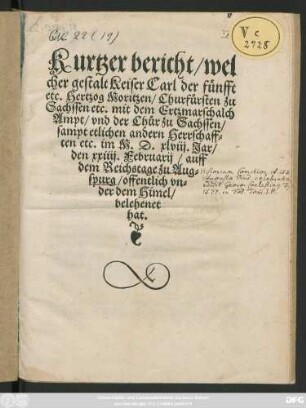 V c
2728
Kurtzer bericht/wel
cher gestalt Keiser Carl der fünffte
etc. Hertzog Moritzen/Churfürsten zu
Sachssen etc. mit dem Ertzmarschalch
Ampt/vnd der Chür zu Sachssen/
sampt etlichen andern Herrschaff-
ten etc. im M. D. xlviij. Jar/
den xxiiij. Februarij/auff
dem Reichstage zu Aug-
spurg/offentlich vn-
der dem Himel/
belehenet
hat.